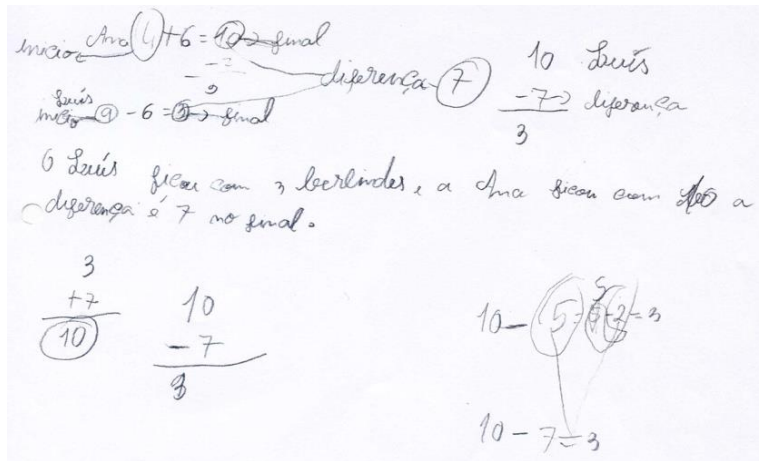 início Ana 4+6=10→final
diferença 7
Luís
início 9-6=3→final
10 Luís
-7→ diferença
3
O Luís ficou com 3 berlindes, a Ana ficou com 10 a
diferença é 7 no final.
3
+7
10
10
-7
3
10-5=5-2=3
10-7=3